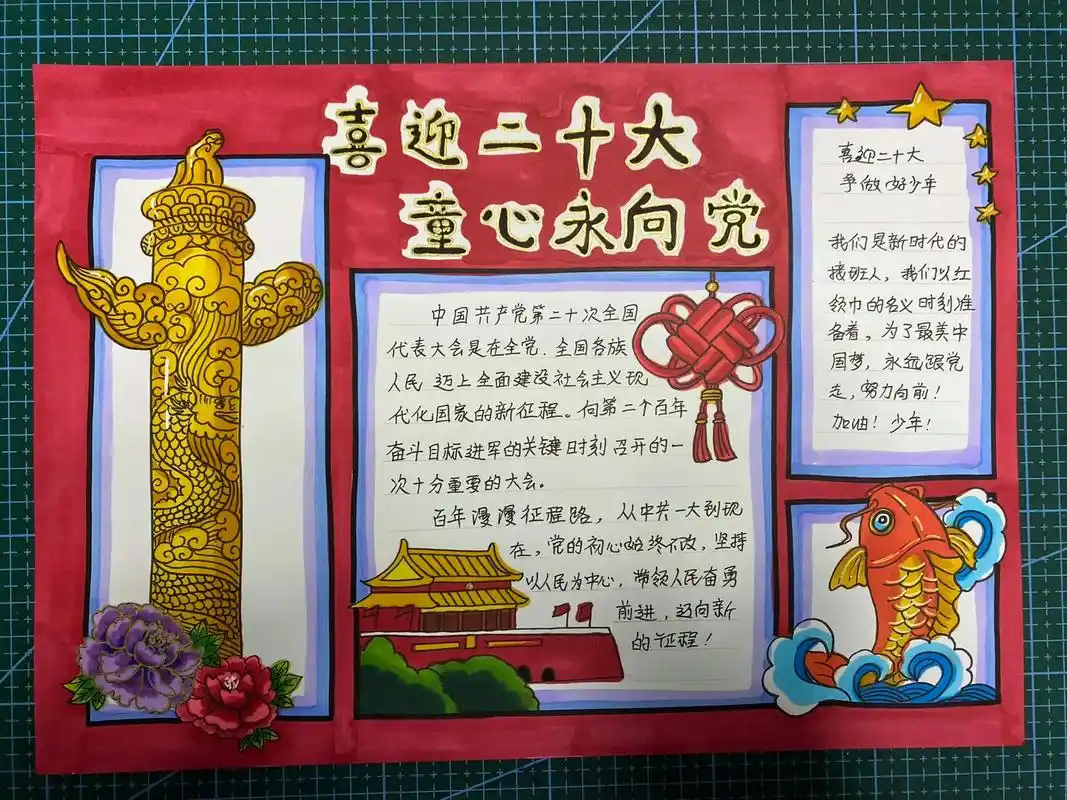 喜迎二十大
童心永向党
中国共产党第二十次全国
代表大会是在全党.全国各族
人民 迈上全面建设社会主义现
代化国家的新征程。向第二个百年
奋斗目标进军的关键时刻召开的一
次十分重要的大会。
百年漫漫征程路，从中共一大到现
在，党的初心始终不改，坚持
以人民为中心，带领人民奋勇
前进，迈向新
的征程！
喜迎二十大
争做好少年
我们是新时代的
接班人，我们以红
领巾的名义时刻准
备着，为了最美中
国梦，永远跟党
走，努力向前！
加油！少年！